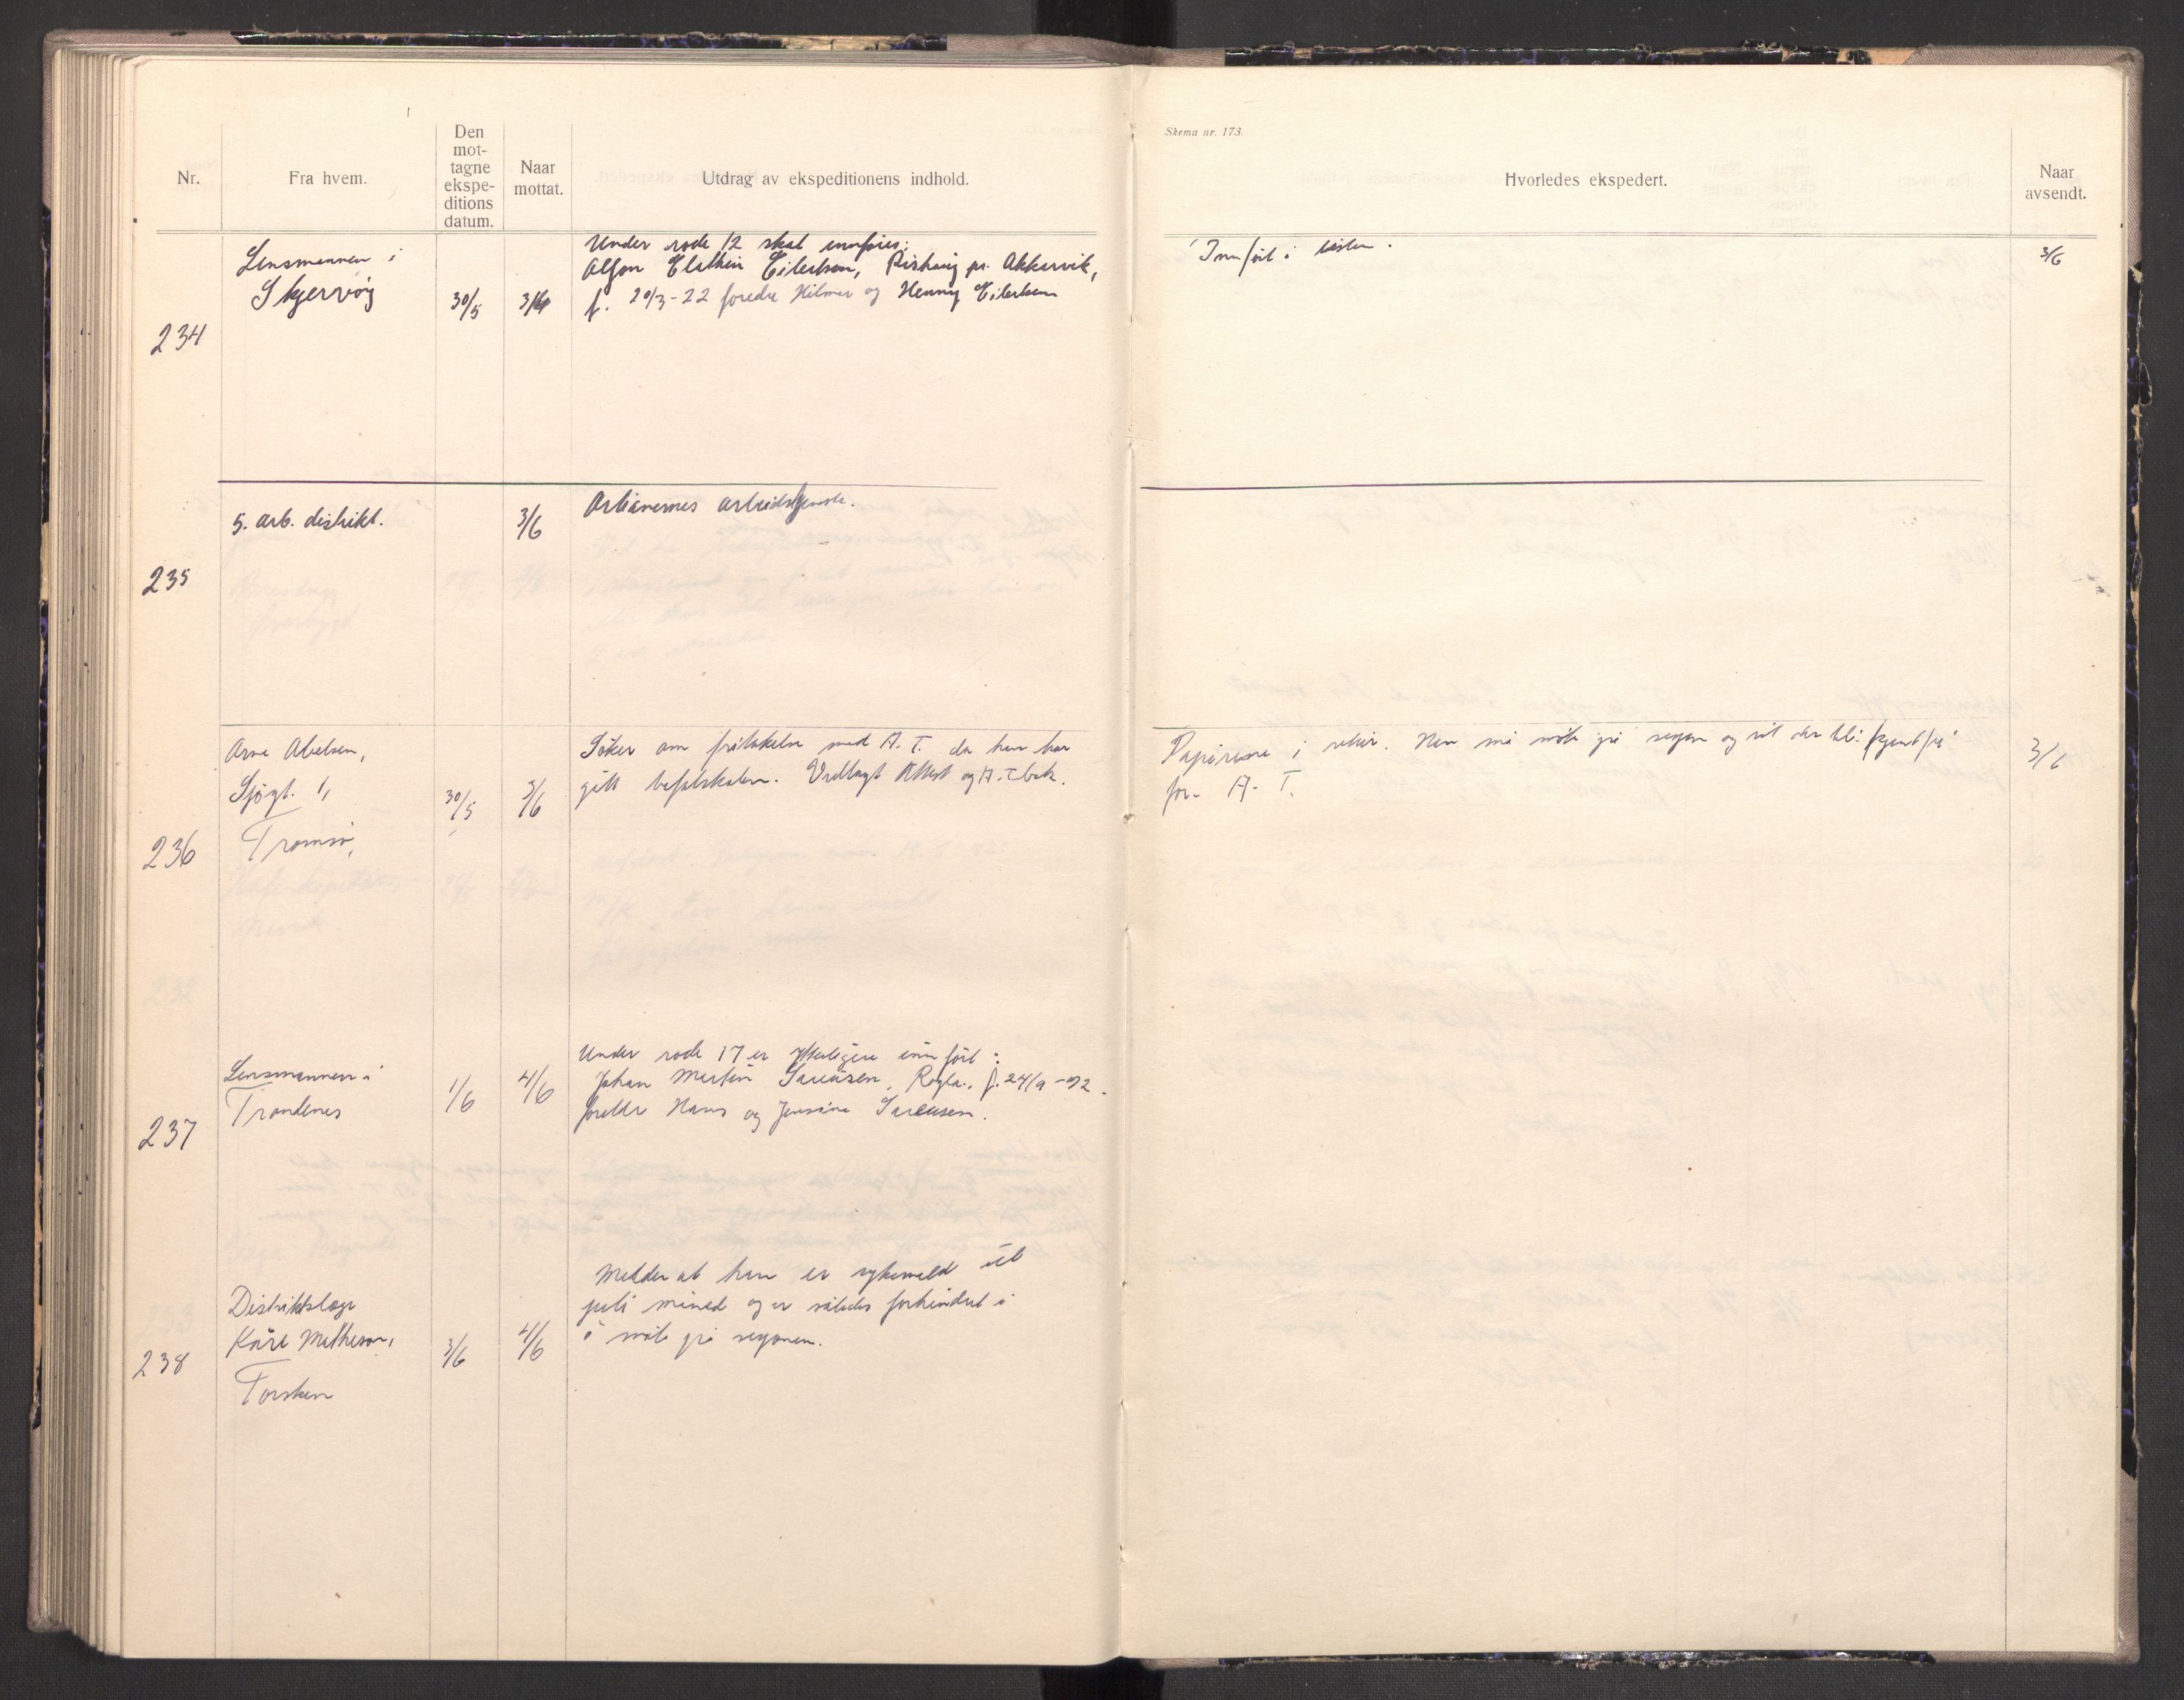 Nr.
Fra hvem.
Den
mot-
tagne
ekspe-
ditions
datum.
Naar
mottat.
Utdrag av ekspeditionens indhold.
Skema nr. 173.
Hvorledes ekspedert.
Naar
avsendt.
234
Lensmannen i
Skjervøy
30/5
3/6
Under rode 12 skal innføres:
Alfon Eilertsen, pr. Akkarvik,
f. 20/3-22 foredre Hilmar og Henny Eilertsen
Innført i listen.
3/6
235
5. arb. distrikt.
3/6
Artianernes arbeidstjeneste.
236
Arne Abelsen,
Sjøgt. 1,
Tromsø,
30/5
3/6
Söker om fritakelse med A. T. da han har
gått befalskolen. Vedlagt Attest og A.T. bok.
Papirene i retur. Han må møte på sesjon og vil der bli
for A. T.
3/6
237
Lensmannen i
Trondenes
1/6
4/6
Under rode 17 er ytterligere innført:
Johan Martin f. 24/9-
foreldre Hans og Jensine
238
Distriktslege
Kåre Matheson,
Torsken
3/6
4/6
Melder at han er sykemeld til
juli måned og er således forhindret i
å møte på sesjonen.